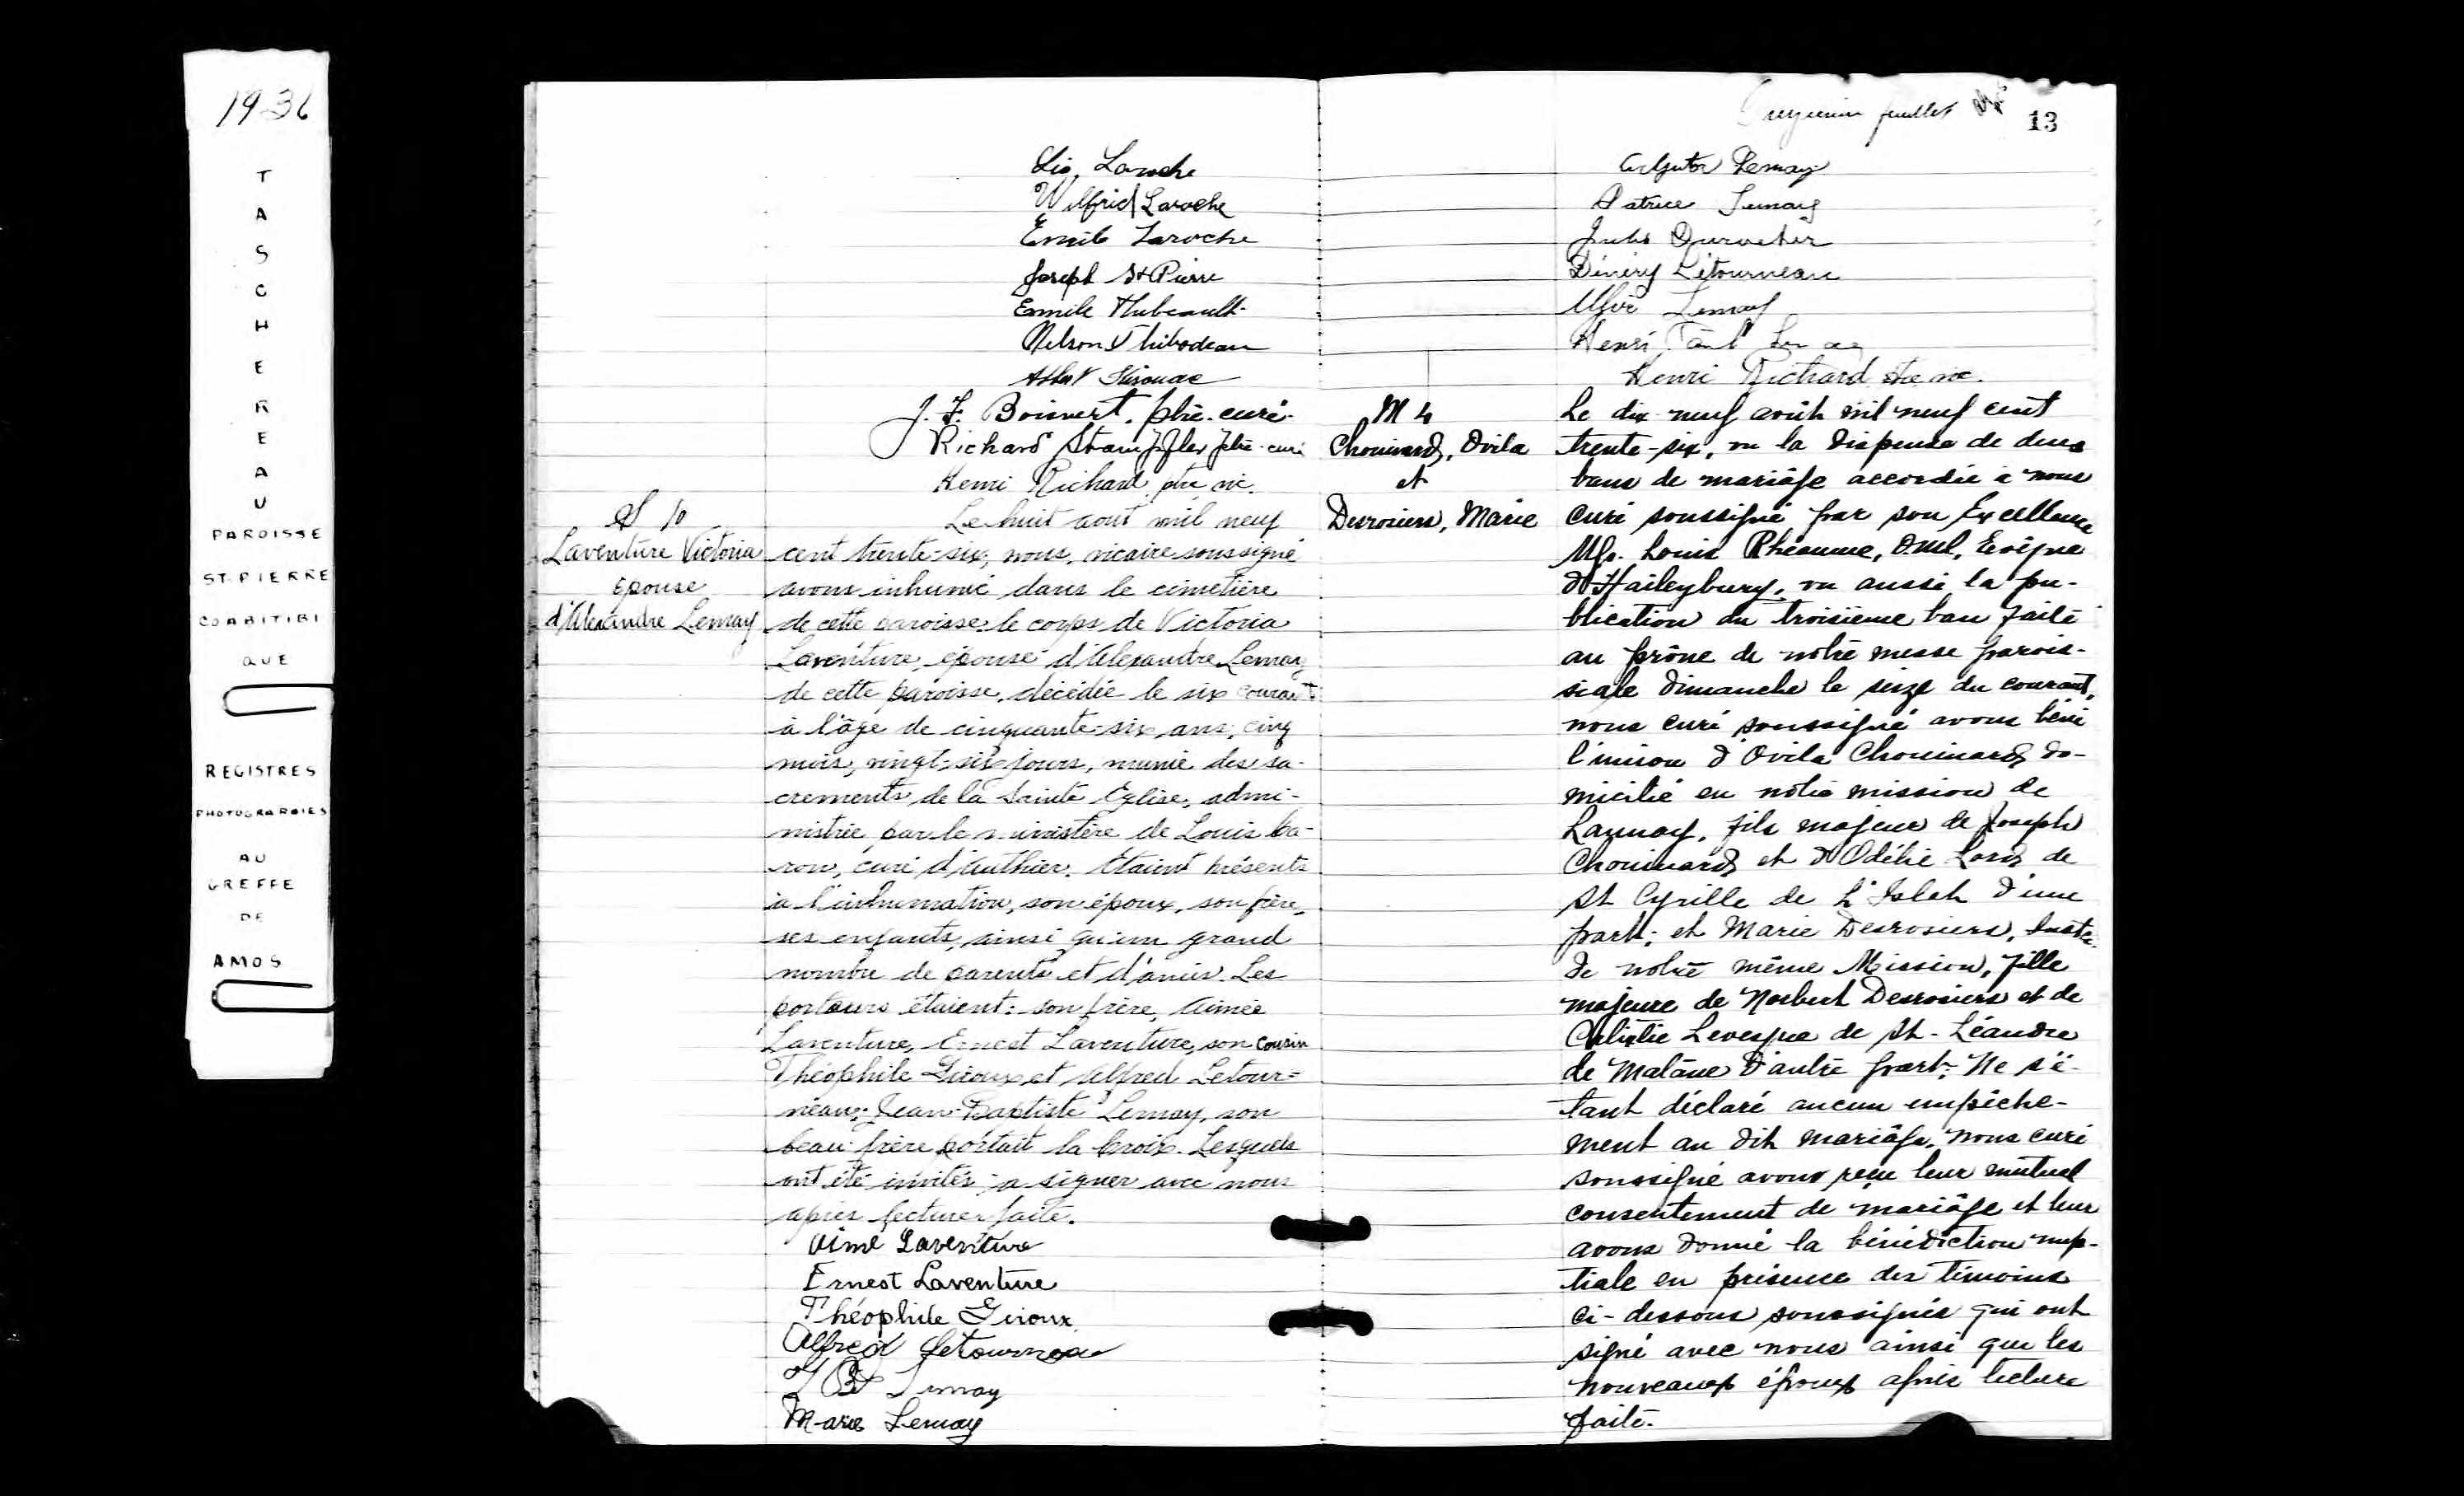 1936
TASCHEREAU
PAROISSE
ST-PIERRE
COABITIBI
QUE
REGISTRES
PHOTOGRAPHIES
AU
GREFFE
DE
AMOS
Laroche
Wilfrid Laroche
Emile Laroche
Joseph St Pierre
Emile Thibeault
Nelson Thibodeau
J. F. Boisvert, ptre-curé
Richard ptre-curé
Henri Richard ptre vic.
S 10
Laventure Victoria
épouse
d'Alexandre Lemay
Le huit aout mil neuf
cent trente-six, nous, vicaire soussigné
avons inhumé dans le cimetière
de cette paroisse, le corps de Victoria
Laventure, épouse d'Alexandre Lemay
de cette paroisse, décédée le six courant
à l'âge de cinquante-six ans, cinq
mois, vingt-six jours, munie des sa-
crements de la Sainte Eglise, admi-
nistrée par le ministère de Louis Ca-
ron, curé d'Authier. Etaient présents
à l'inhumation, son époux, son frère,
ses enfants, ainsi qu'un grand
nombre de parents et d'amis. Les
porteurs étaient: son frère, Aimée
Laventure, Ernest Laventure, son cousin
Théophile Giroux et Alfred Letour=
neau; Jean-Baptiste Lemay, son
beau-frère portait la Croix. Lesquels
ont été invités à signer avec nous
après lecture faite.
Aimé Laventure
Ernest Laventure
Théophile Giroux
Alfred Letourneau
J B Lemay
Marie Lemay
feuillet
13
Lemay
Patrice Lemay
Durocher
Létourneau
Lemay
Henri Paul
Henri Richard ptre vic.
M 4
Chouinard, Ovila
et
Desrosiers, Marie
Le dix-neuf août mil neuf cent
trente-six, vu la dispense de deux
bans de mariage accordée à nous
curé soussigné par son Excellence
Mgr. Louis Rhéaume, O.M.I, Evêque
d'Haileybury, vu aussi la pu-
blication du troisième ban faite
au prône de notre messe parois-
siale dimanche le seize du courant,
nous curé soussigné avons béni
l'union d'Ovila Chouinard do-
micilié en notre mission de
Launay, fils majeur de Joseph
Chouinard et d'Odélie Lord de
St Cyrille de L'Islet d'une
part; et Marie Desrosiers,
de notre même Mission, fille
majeure de Norbert Desrosiers et de
Levesque de St-Léandre
de Matane d'autre part; Ne s'é-
tant déclaré aucun empêche-
ment au dit mariage, nous curé
soussigné avons reçu leur mutuel
consentement de mariage et leur
avons donné la bénédiction nup-
tiale en présence des témoins
ci-dessous soussignés qui ont
signé avec nous ainsi que les
nouveaux époux après lecture
faite.